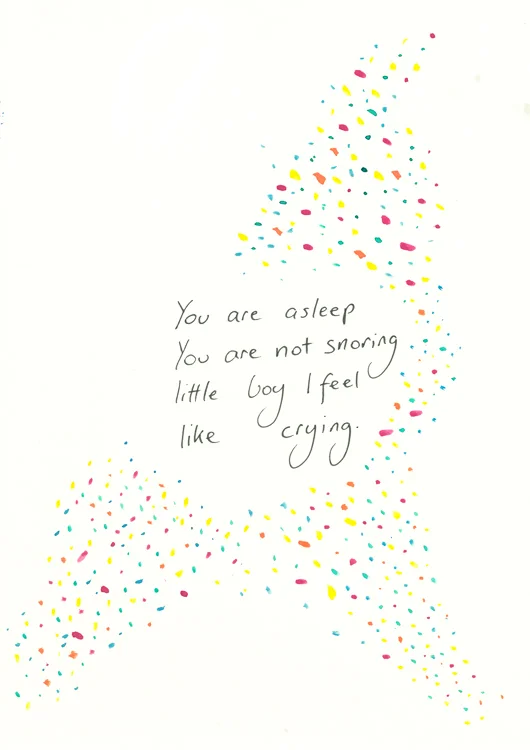 You are asleep
You are not snoring
little boy I feel
like crying.